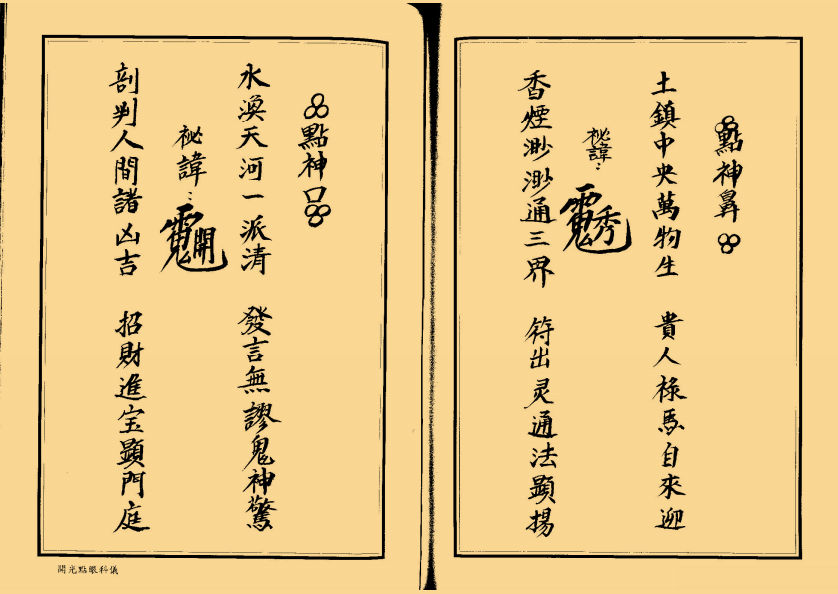 點神鼻
土鎮中央萬物生 貴人祿馬自來迎
祕諱：
香煙渺渺通三界 符出灵通法顯揚
點神口
水渙天河一派清 發言無謬鬼神驚
祕諱：
剖判人間諸凶吉 招財進宝顯門庭
開光點眼科儀